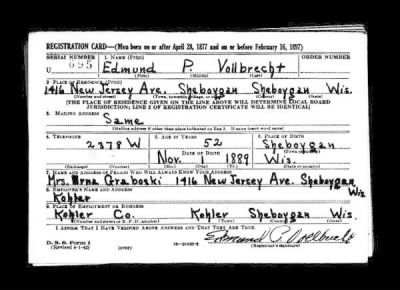 REGISTRATION CARD—(Men born on or after April 28, 1877 and on or before February 16, 1897)
SERIAL NUMBER 1. NAME (Print) ORDER NUMBER
U 695 Edmund P. Vollbrecht
(First) (Middle) (Last)
2. PLACE OF RESIDENCE (Print)
1416 New Jersey Ave. Sheboygan Sheboygan Wis.
(Number and street) (Town, township, village, or city) (County) (State)
[THE PLACE OF RESIDENCE GIVEN ON THE LINE ABOVE WILL DETERMINE LOCAL BOARD
JURISDICTION; LINE 2 OF REGISTRATION CERTIFICATE WILL BE IDENTICAL]
3. MAILING ADDRESS
Same
[Mailing address if other than place indicated on line 2. If same insert word same]
4. TELEPHONE 5. AGE IN YEARS 6. PLACE OF BIRTH
2378 W 52 Sheboygan
DATE OF BIRTH (Town or county)
Nov. 1 1889 Wis.
(Exchange) (Number) (Mo.) (Day) (Yr.) (State or country)
7. NAME AND ADDRESS OF PERSON WHO WILL ALWAYS KNOW YOUR ADDRESS
Mrs. Erna Graboski 1416 New Jersey Ave. Sheboygan Wis
8. EMPLOYER'S NAME AND ADDRESS
Kohler
9. PLACE OF EMPLOYMENT OR BUSINESS
Kohler Co. Kohler Sheboygan Wis.
(Number and street or R. F. D. number) (Town) (County) (State)
I AFFIRM THAT I HAVE VERIFIED ABOVE ANSWERS AND THAT THEY ARE TRUE.
D. S. S. Form 1
(Revised 4-1-42) (over) Edmund P. Vollbrecht
(Registrant's signature)